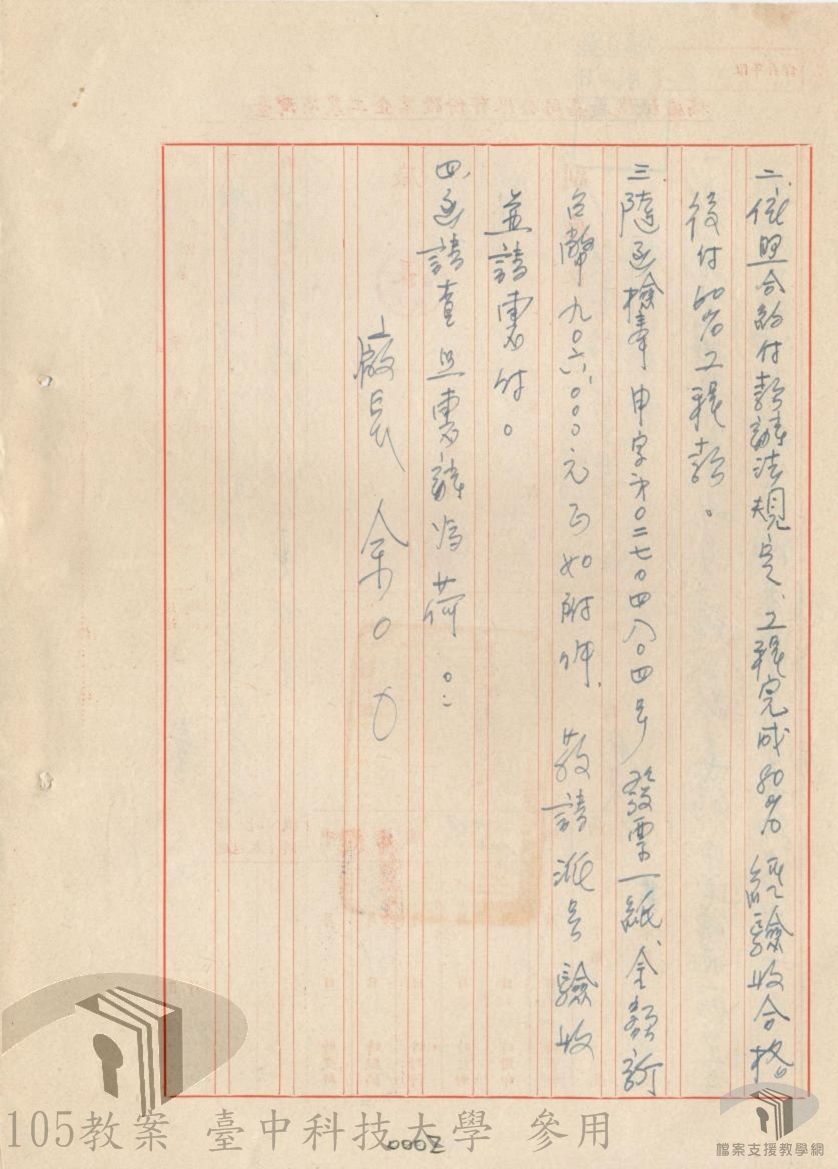 二、依照合約付款辦法規定、工程完成80%經驗收合格
後付80%工程款。
三、隨函檢奉申字第0二七0四八0四号發票一紙、金額計
台幣九0六、000元正如附件、敬請派員驗收
並請惠付。
四、函請查照惠辦為荷。
廠長 余00
105教案 臺中科技大學 參用
檔案支援教學網
0002